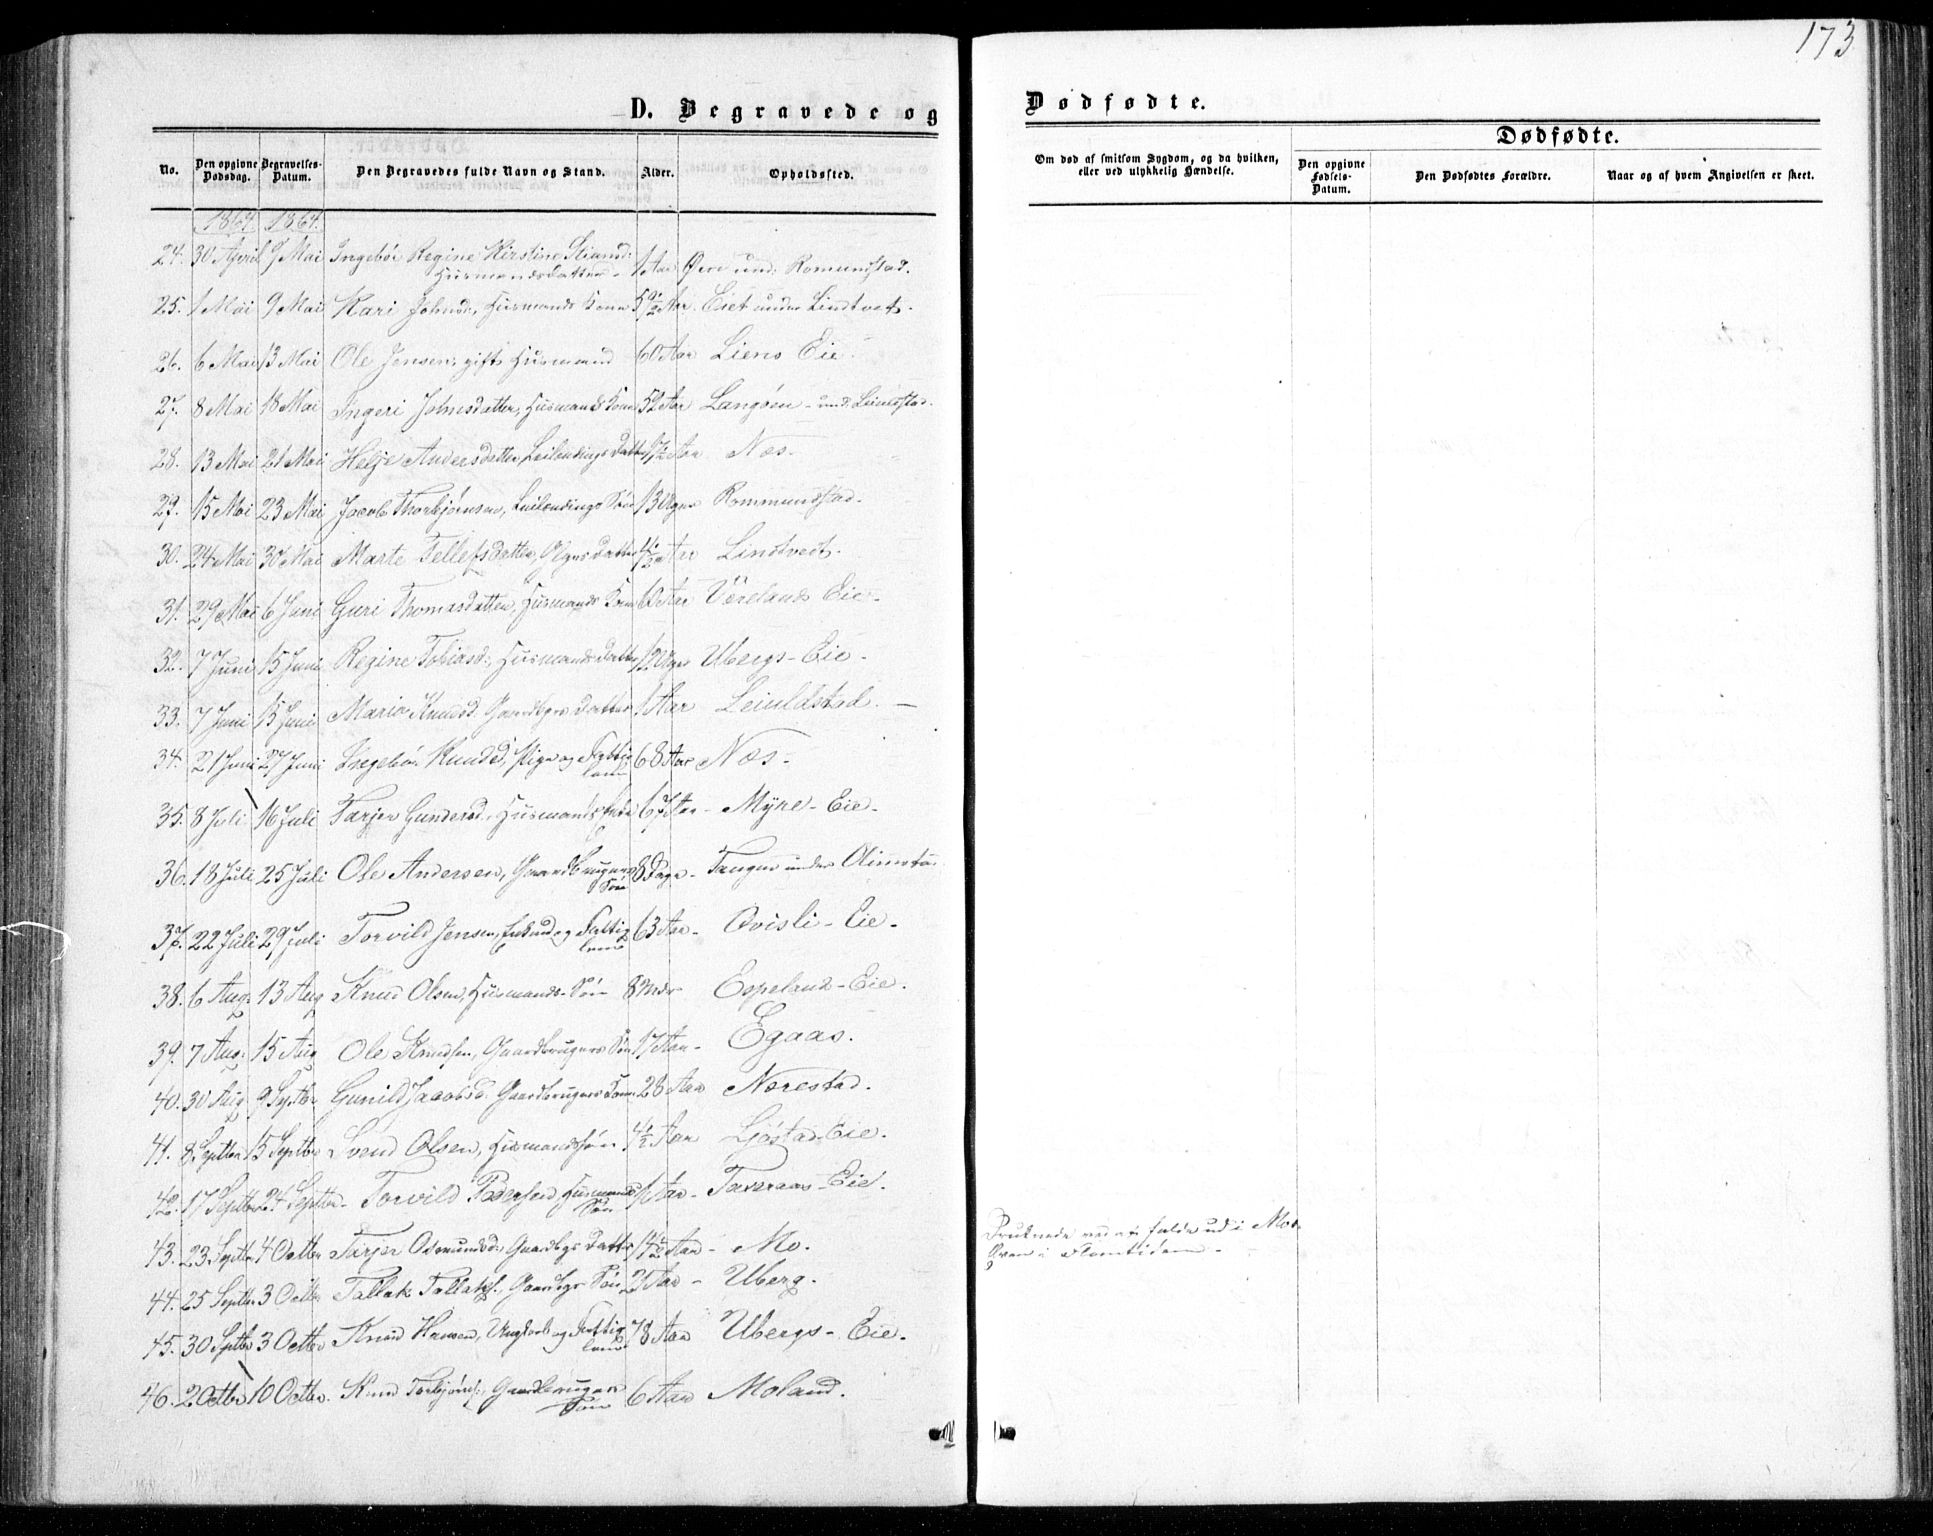 173
D. Begravede og Dødfødte.
No.
Den opgivne Dødsdag.
Begravelses-Datum.
Den Begravedes fulde Navn og Stand.
Alder.
Opholdssted.
Om død af smitsom Sygdom, og da hvilken, eller ved ulykkelig Hændelse.
Dødfødte.
Den opgivne Fødsels-Datum.
Den Dødfødtes Forældre.
Naar og af hvem Angivelsen er skeet.
1864. 1864.
24. 30 April 9 Mai Ingebör Regine Kirstine
Husmandsdatter 1 Aar Øere und: Romundstad.
25. 1 Mai 9 Mai Kari Johnsd:, Husmands Kone Aar Eiet under Lindtveit.
26. 6 Mai 13 Mai Ole Jensen, gift Husmand 60 Aar Liens Eie.
27. 8 Mai 18 Mai Ingeri Johnsdatter, Husmands Kone 52 Aar und:
28. 13 Mai 21 Mai Helje Andersdatter, Leilendings Datter Aar Næs.
29. 15 Mai 23 Mai Jacob Thorbjørnsen, Leilendings Søn 13 Uger Rommundstad.
30. 24 Mai 30 Mai Marte Tellefsdatter, Aar Lindtveit.
31. 29 Mai 6 Juni Guri Thomasdatter, Husmands Kone Aar Vöreland Eie.
32. 7 Juni 15 Juni Regine Tobiasd:, Husmands Datter 12 Uger Ubergs-Eie.
33. 7 Juni 15 Juni Maria Knudsd. Gaardbgrs Datter 1 Aar Leiuldstad. —
34. 21 Juni 27 Juni Ingebör Knudsd, Pige og Fattig
lem 68 Aar Næs.
35. 8 Juli 16 Juli Tarjer Gundersd., Husmands Enke 67 Aar - Myre-Eie.
36. 18 Juli 25 Juli Ole Andersen, Gaardbrugers
Søn 8 Dage - Tangen under
37. 22 Juli 29 Juli Torvild Jensen, Enkmd og Fattig
lem 63 Aar - Qvisli-Eie.
38. 6 Aug. 13 Aug Knud Olsen, Husmands-Søn 8 Mdr Espeland-Eie.
39. 7 Aug: 15 Aug Ole Knudsen, Gaardbrugers Søn 17 Aar - Egaas.
40. 30 Aug 9 Septbr Gunild Jacobsd. Gaardbrugers Kone 28 Aar Nærestad.
41. 8 Septbr 15 Septbr Svend Olsen, Husmandssøn 4½ Aar Ljöstad-Eie.
42. 17 Septbr 24 Septbr Torvild Pedersen, Husmands
Søn Aar - Toveraas-Eie.
43. 23 Septbr 4 Octbr Tarjer Osmundsd:, Gaardbgs Datter Aar - Mo. Druknede ved at falde ud i Mo-
Øven i Flomtiden -
44. 25 Septbr 3 Octbr Tallak Tallaks., Gaardbgs Søn Aar - Uberg.
45. 30 Septbr 3 Octbr Knud Hansen, Ungkarl og Fattig
lem 78 Aar Ubergs-Eie.
46. 2 Octbr 10 Octbr. Knud Torbjørns., Gaardbrugers
Søn 6 Aar Moland.